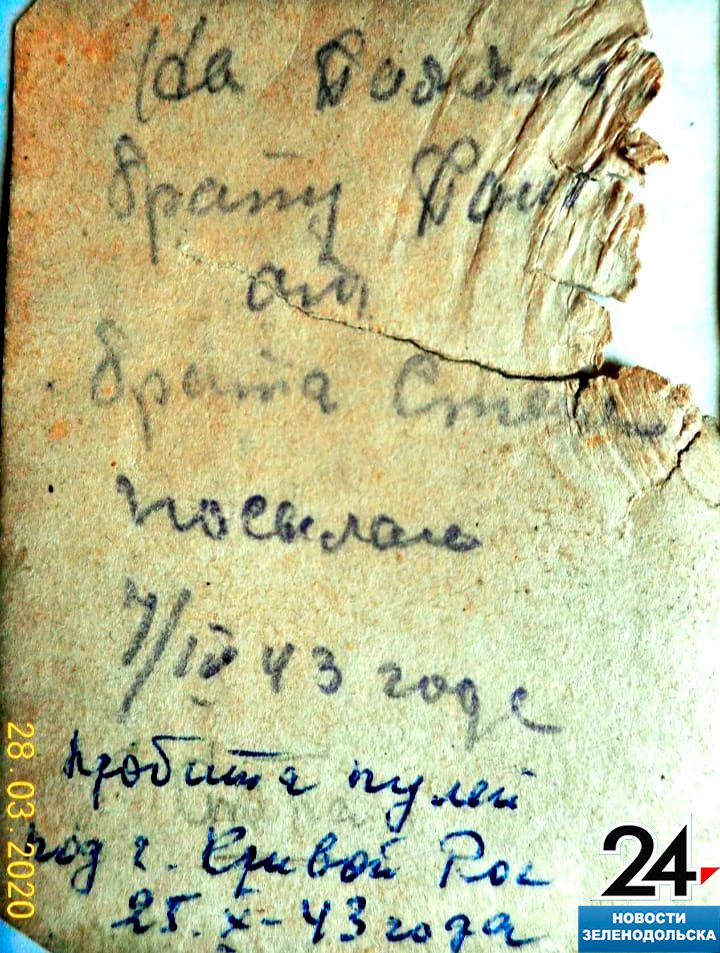 На
брату
от
брата
посылаю
7/IV 43 годе
пробита пулей
под г. Кривой Рог
25.X-43 года
28.03.2020
24
НОВОСТИ
ЗЕЛЕНОДОЛЬСКА